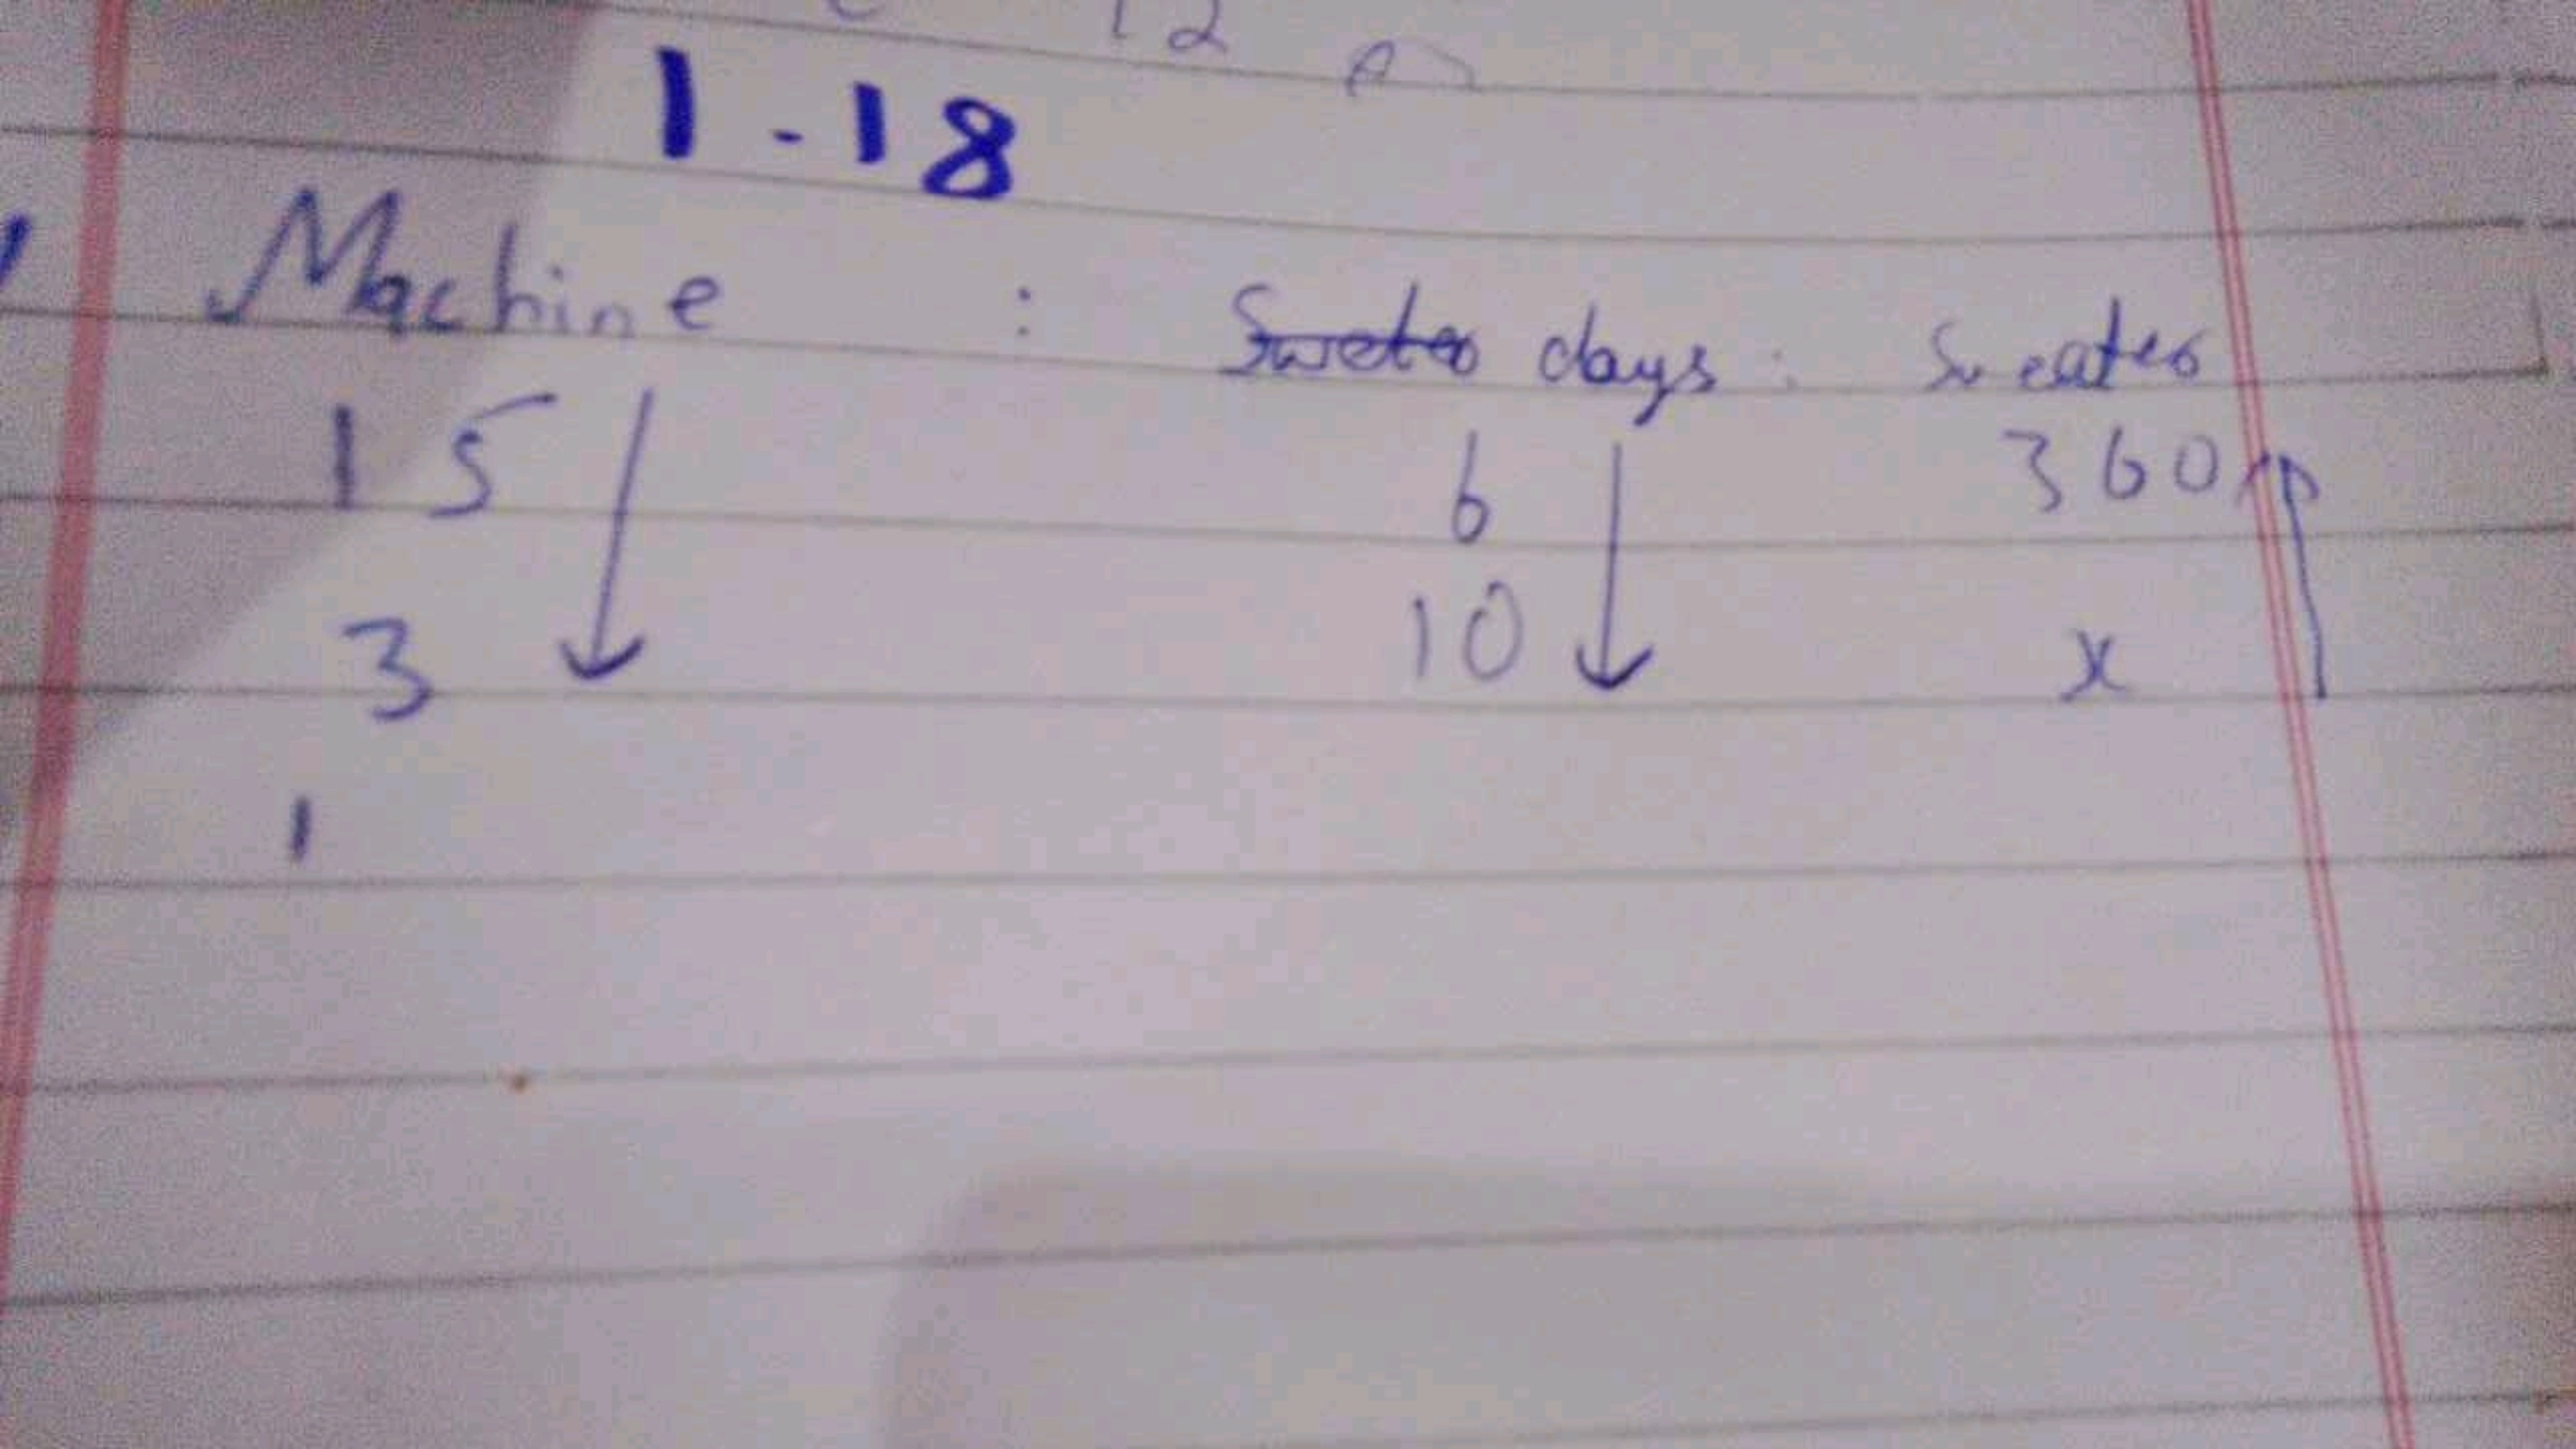 12
1-18
Machine : days : Sweater
15 6 360
3 10 x
1